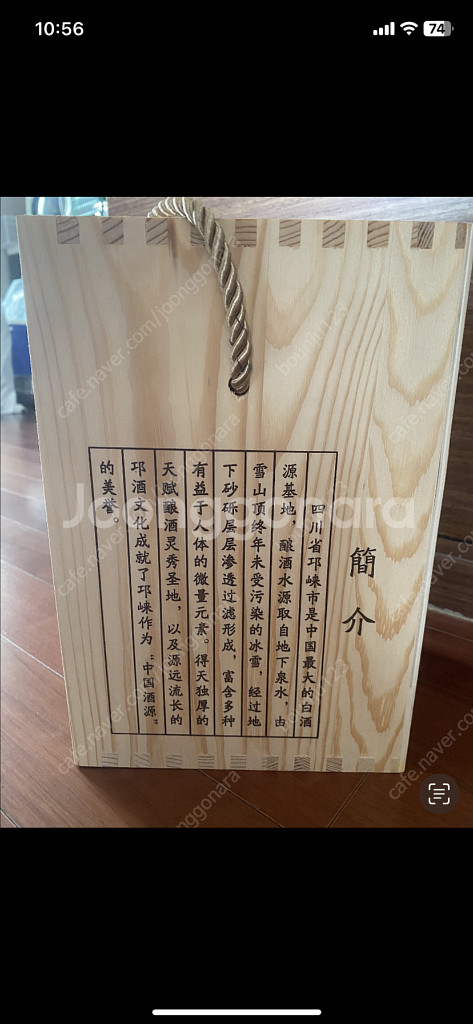 10:56
74
簡介
四川省邛崃市是中国最大的白酒
源基地，酿酒水源取自地下泉水，由
雪山顶终年未受污染的冰雪，经过地
下砂砾层层渗透过滤形成，富含多种
有益于人体的微量元素。得天独厚的
天赋酿酒灵秀圣地，以及源远流长的
邛酒文化成就了邛崃作为“中国酒源”
的美誉。
Joonggonara
cafe.naver.com/joonggonara